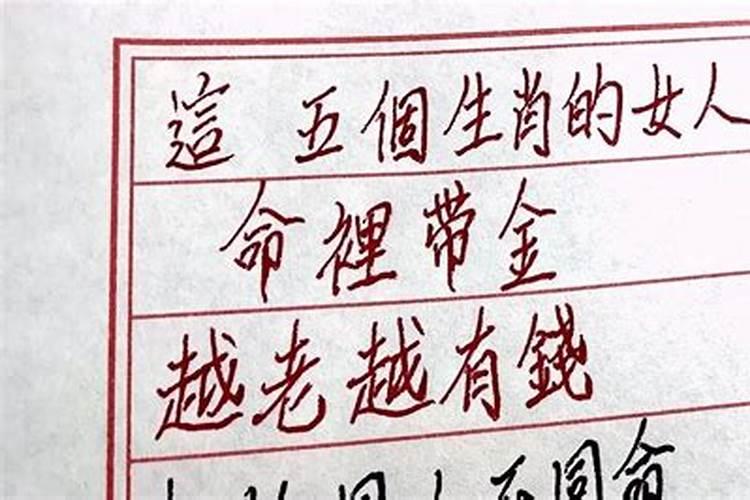 這 五個生肖的女人
命裡帶金
越老越有錢
不同命